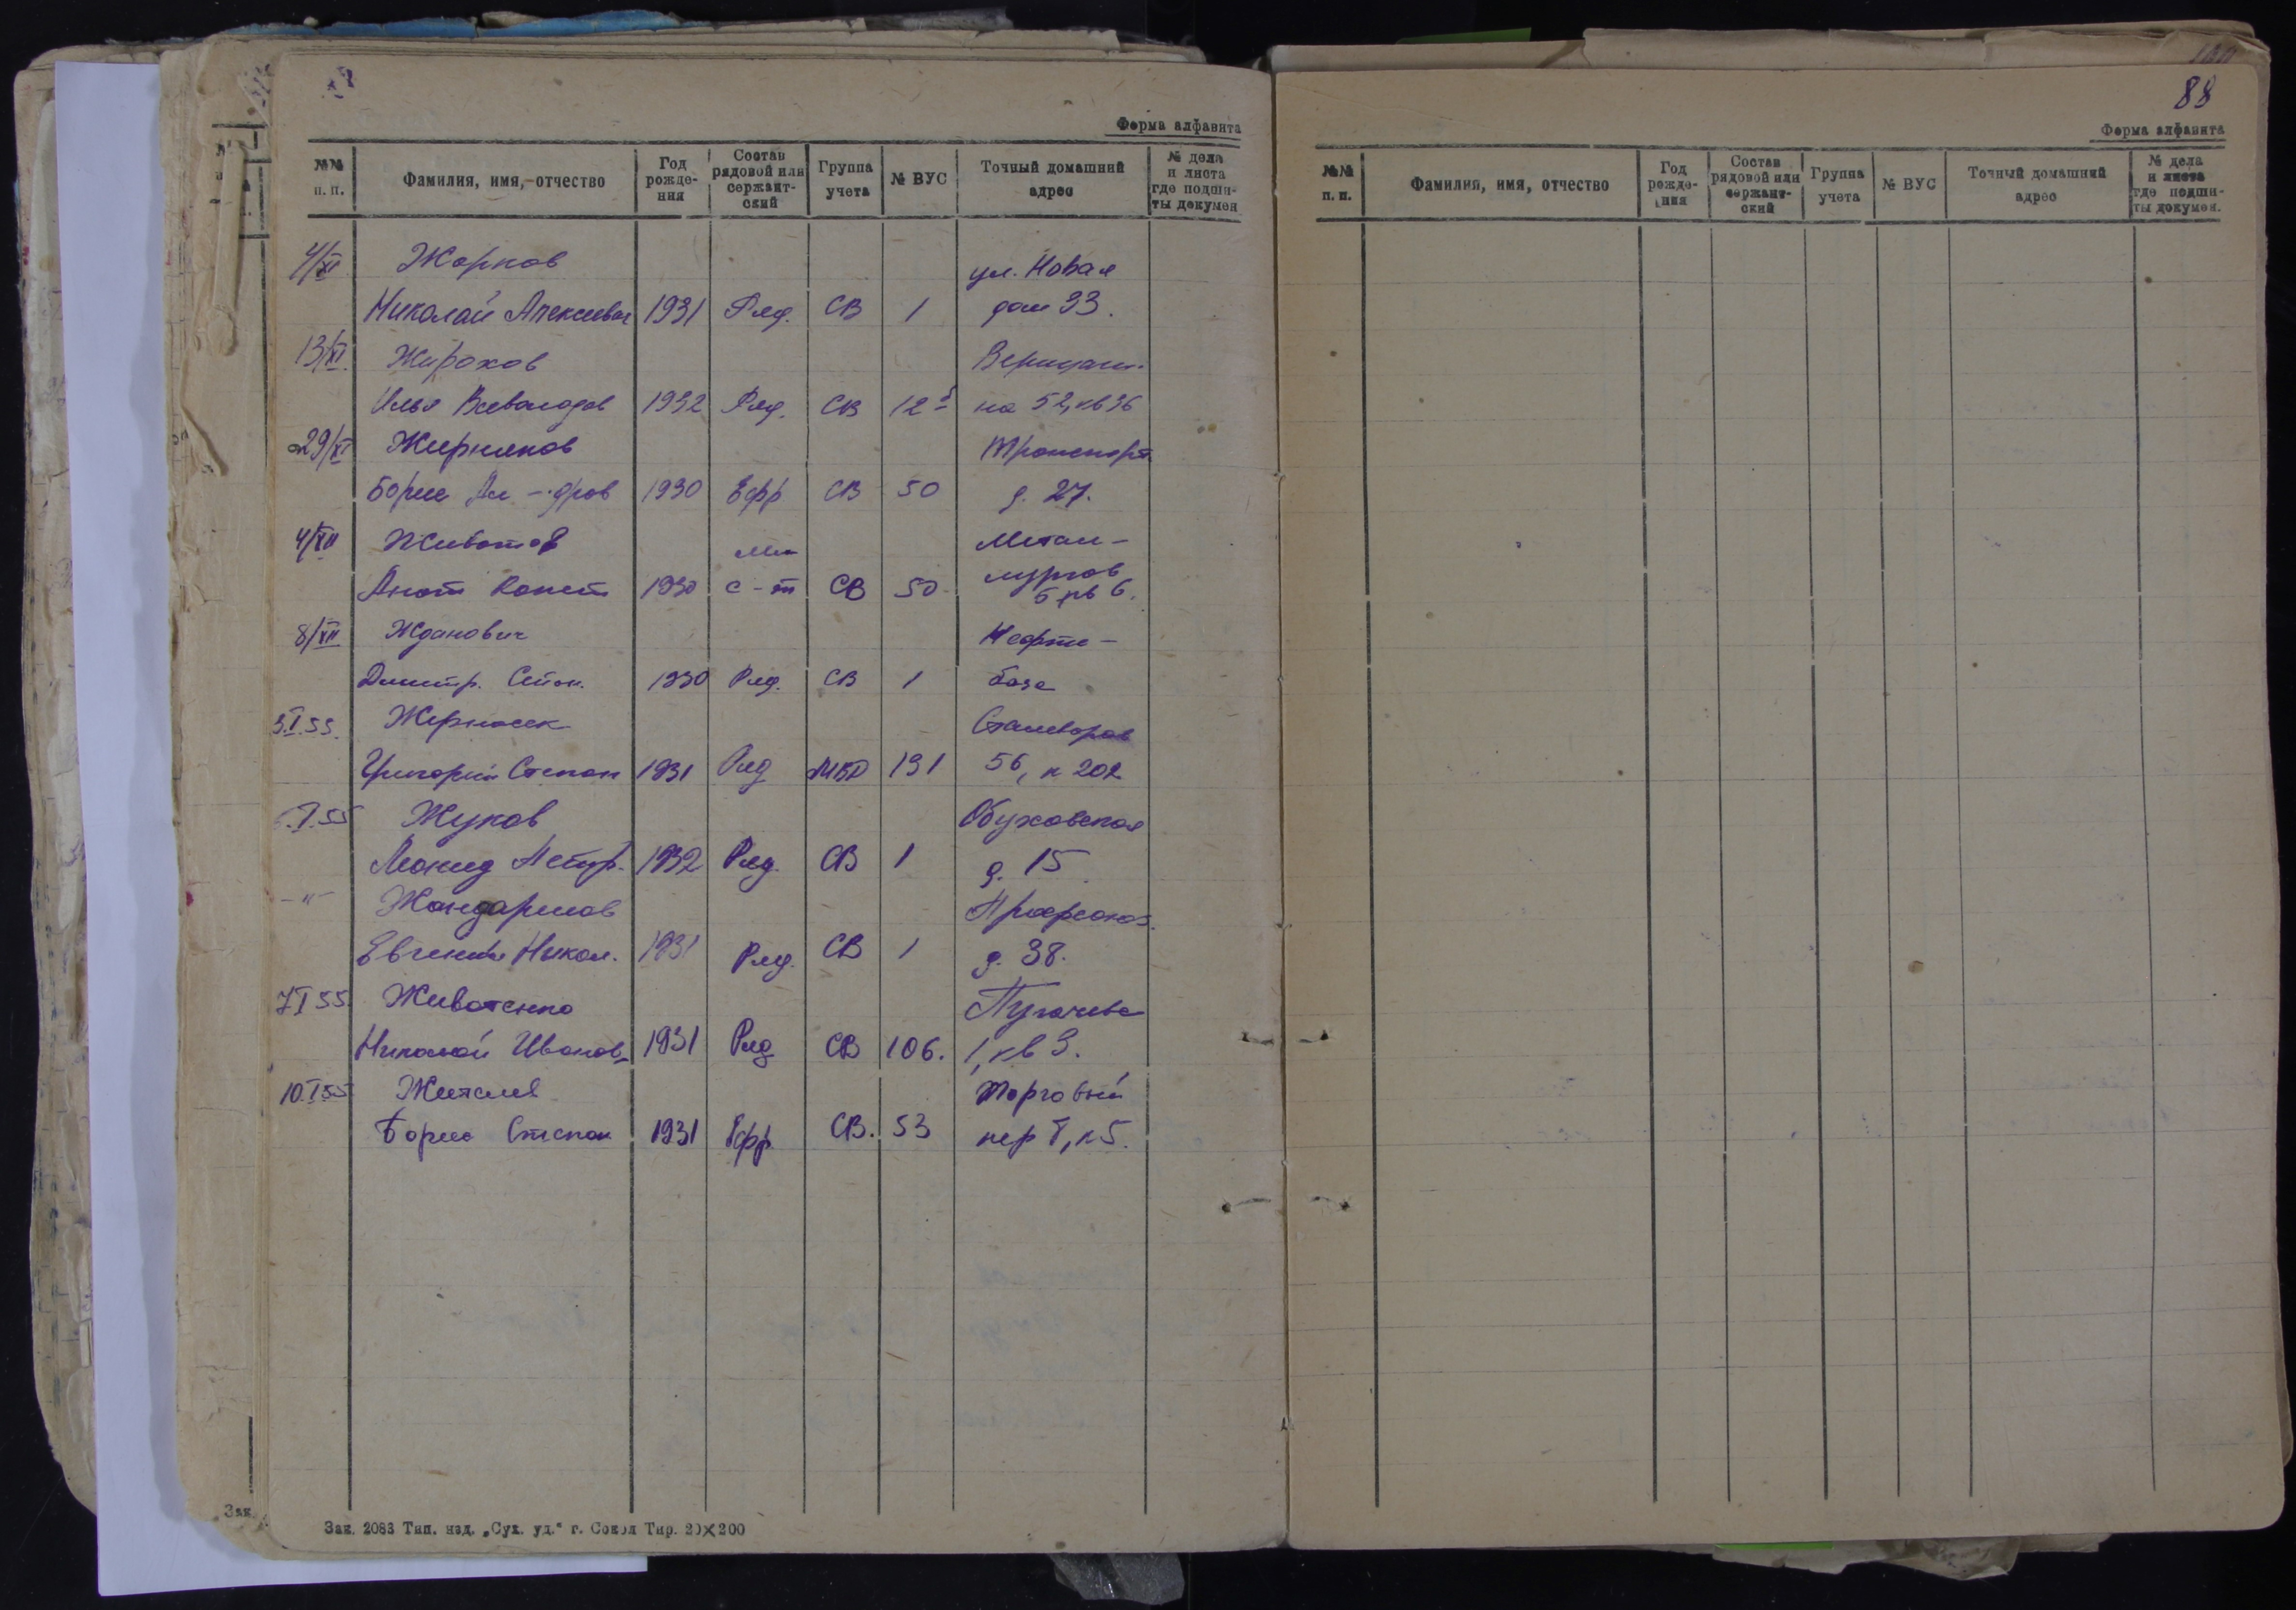 Форма алфавита
№№ п. п. Фамилия, имя, отчество Год рожде- ния Состав рядовой или сержант- ский Группа учета № ВУС Точный домашний адрес № дела и листа где подши- ты докумен
4/XI Жарков ул. Новая
Николай Алексеевич 1931 Ряд. СВ 1 дом 33.
13/XI. Жирохов
Илья Всеволодов 1932 Ряд. СВ на 52, кв 36
29/XI Жирняков Транспорт.
Борис Ал-дров 1930 Ефр СВ 50 д. 27.
4/XII Животов Метал-
Мл
Анат Конст 1930 с-т СВ 50 лургов
5 кв 6.
8/XII Жданович Нефте-
Дмитр. Степ. 1930 Ряд. СВ 1 база
Жерносек Сталеваров
Григорий Степан 1931 Ряд МВД 131 56, к 202
I.55 Жуков Обуховская
Леонид Петр. 1932 Ряд. СВ 1 д. 15
-"- Жандармов Профсоюз.
Евгений Никол. 1931 Ряд. СВ 1 д. 38.
7 I 55 Животенко Пугачева
Николай Иванов. 1931 Ряд СВ 106. 1, кв 3.
10.I 55 Торговый
Борис Степан 1931 Ефр. СВ. 53 пер
Зак. 2083 Тип. изд. „Сух. уд.“ г. Сокол Тир. 20×200
Зак.
88
Форма алфавита
№№ п. п. Фамилия, имя, отчество Год рожде- ния Состав рядовой или сержант- ский Группа учета № ВУС Точный домашний адрес № дела и листа где подши- ты докумен.